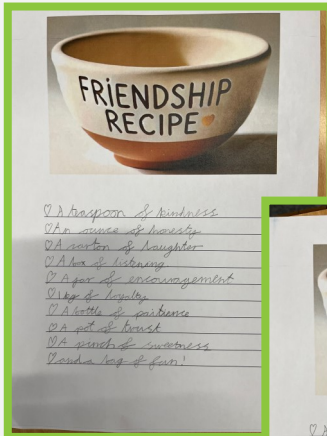 FRiENDSHIP
RECIPE
♡ A teaspoon of kindness
♡ An ounce of honesty
♡ A carton of laughter
♡ A box of listening
♡ A jar of encouragement
♡ 1kg of loyalty
♡ A bottle of patience
♡ A pot of trust
♡ A pinch of sweetness
♡ and a bag of fun!
♡ A